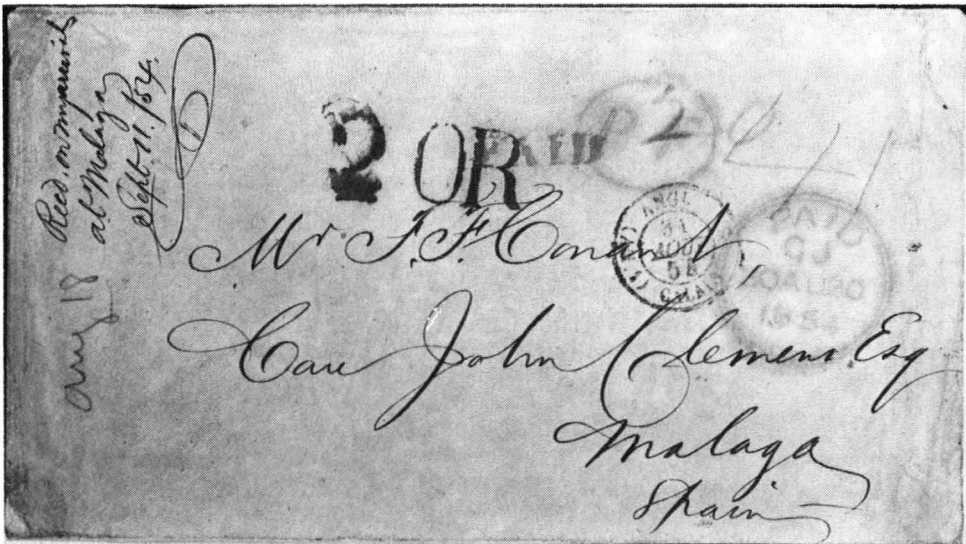 Recd. on
at Malaga
Sept. 11. /54.
Aug 18
2 OR
PAID
2
ANGL.
31
AOUT
54
CALAIS
PAID
CJ
30AU30
1854
Mr. F. F. Conant,
Care John Clemens Esq
Malaga
Spain